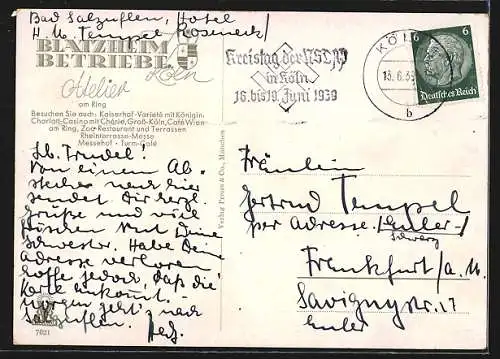 Bad Salzuflen, Hotel
H. W. Tempel Roseneck/
BLATZHEIM
BETRIEBE
Köln
Atelier
am Ring
Besuchen Sie auch: Kaiserhof-Varieté mit Königin
Charlott-Casino mit Chérie, Groß-Köln, Café Wien
am Ring, Zoo-Restaurant und Terrassen
Rheinterrasse-Messe
Messehof · Turm-Café
Lb. Trudel!
Von einem Ab-
stecher nach hier
sendet Dir herzl.
Grüße und viel
Küsschen Kurt Deine
Schwester. Habe Deine
Adresse verloren
hoffe jedoch, daß die
Karte ankommt.
Morgen geht's nach
Salzuflen.
7021
Verlag Preuss & Co., München
Kreistag der NSDAP
in Köln
16. bis 19. Juni 1939
KÖLN
6.39
b
6 6
Deutsches Reich
Fräulein
Gertrud Tempel
per Adresse
Schwarz
Frankfurt/a. M.
Savignystr. 17